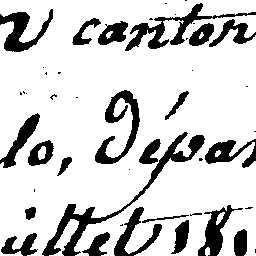 canton
lo, dépar
uillet 181